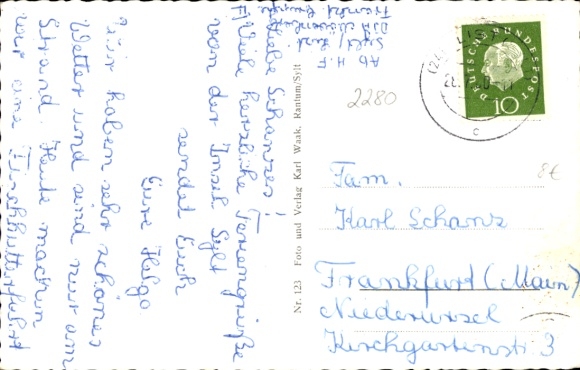 Liebe Schanzes!
Viele herzliche Feriengrüße
von der Insel Sylt
sendet Euch
Eure Helga
Wir haben sehr schönes
Wetter und sind nur am
Strand. Heute machen
wir eine
Ab H.F.
Sylt
Nr. 123 Foto und Verlag Karl Waak, Rantum/Sylt
2280
DEUTSCHE BUNDESPOST
10
c
8€
Fam.
Karl Schanz
Frankfurt (Main)
Niederursel
Kirchgartenstr. 3